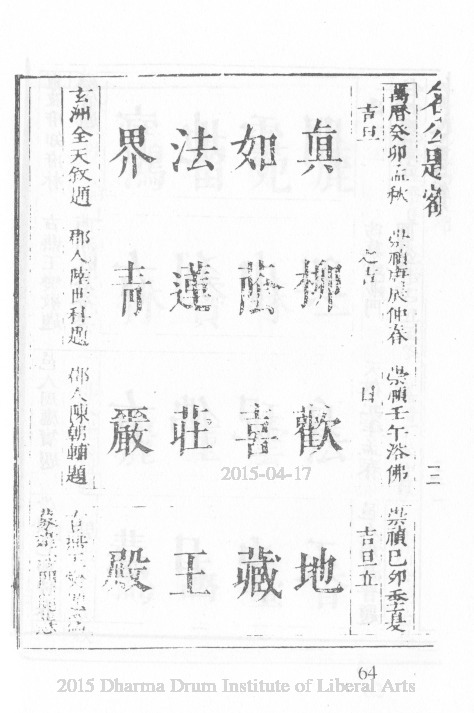 名公題額
三
萬曆癸卯孟秋
吉旦
真如法界
玄洲全天敘題
崇禎庚辰仲春
之吉
柳蔭蓮青
郡人陸世科題
崇禎壬午浴佛
日
歡喜莊嚴
郡人陳朝輔題
崇禎己卯季夏
吉旦立
地藏王殿
2015-04-17
64
2015 Dharma Drum Institute of Liberal Arts